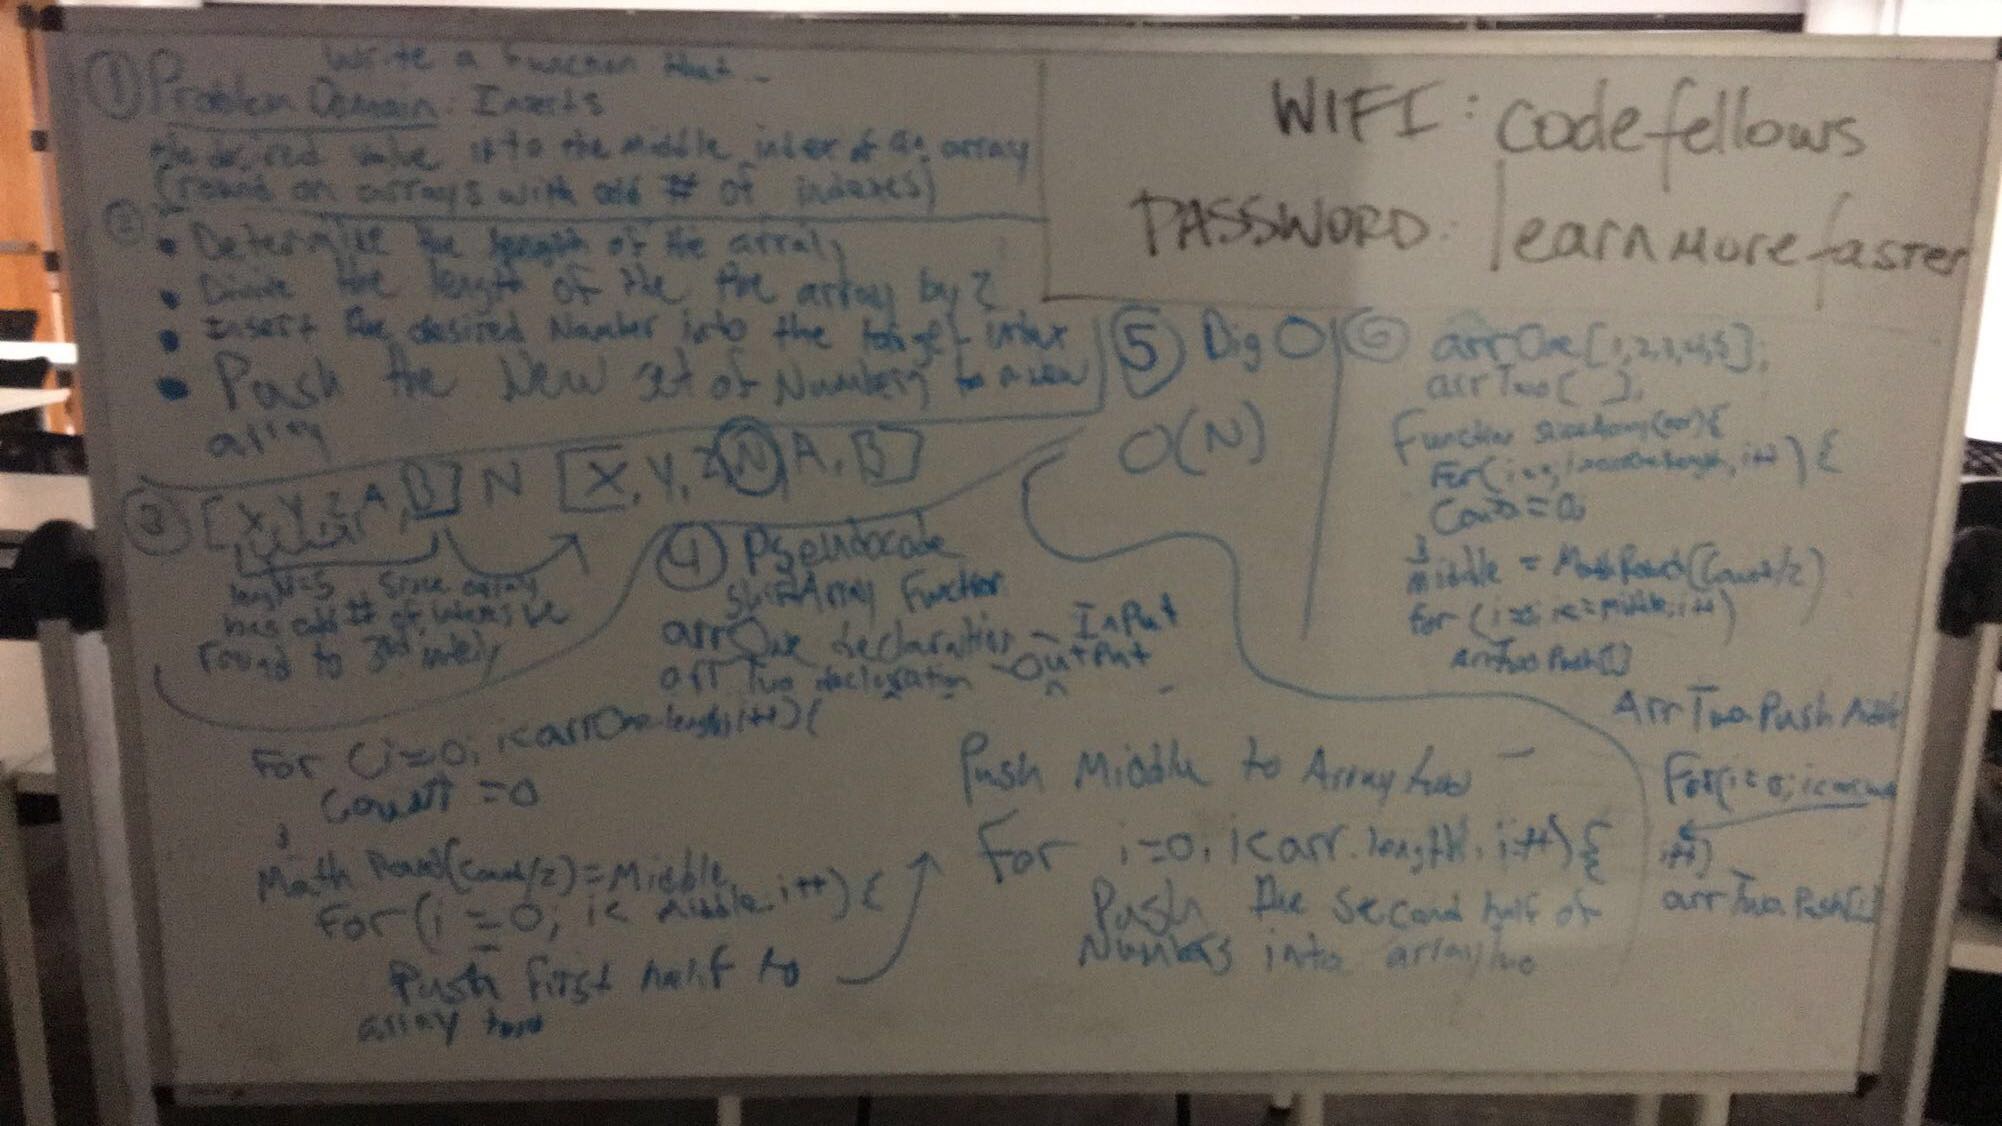 Write a Function that
① Problem Domain: Inserts
the desired value into the middle index of an array
(round on arrays with odd # of indexes)
②
• Determine the length of the array
• Divide the length of the the array by 2
• Insert the desired Number into the target index
• Push the New set of Numbers to a new
array
③ [X, Y, Z, A, B] N [X, Y, Z, N, A, B]
length=5 since array
has odd # of indexes we
round to 3rd
④ Pseudocode
Array Function
arrOne declaration - Input
arr Two declaration - Output
For (i=0; i<arrOne.length; i++){
Count = 0
}
Math Round(Count/2) = Middle
For (i = 0; i< Middle, i++) {
Push first half to
array two
Push Middle to Array two
For i=0, i<arr.length, i++) {
Push the second half of
Numbers into array two
⑤ Big O
O(N)
⑥ arrOne[1,2,3,4,5];
arrTwo[ ],
Function (arr){
For(i=0, i++) {
Count=0;
}
middle = Math Round(Count/2)
for (i=0; i<=middle; i++)
ArrTwo Push[i]
Arr Two Push Middle
For(i=0; i<
i++)
arr Two. Push[i]
WIFI: codefellows
PASSWORD: learnMorefaster